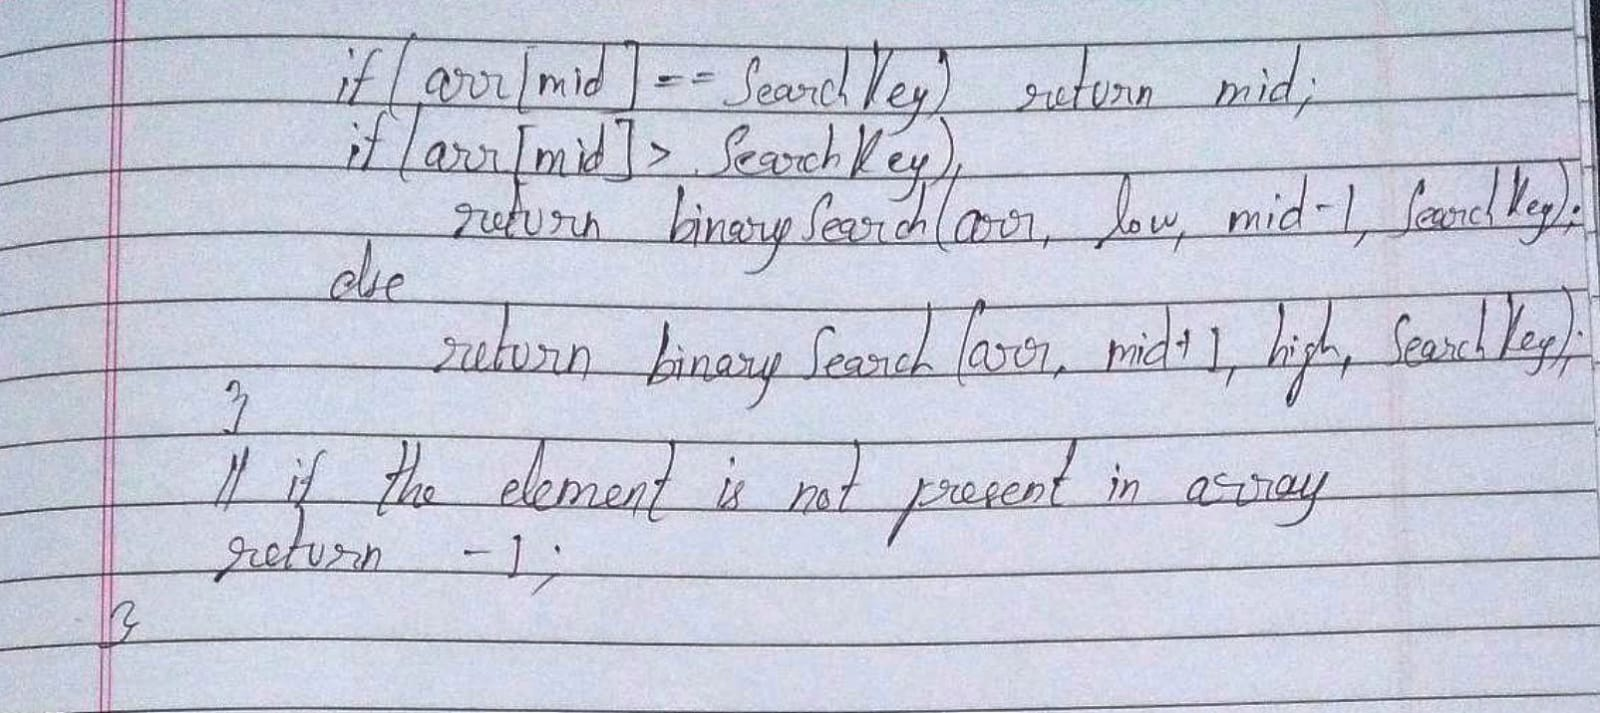 if (arr[mid] == SearchKey) return mid;
if (arr[mid] > SearchKey)
return binarySearch(arr, low, mid-1, SearchKey);
else
return binarySearch(arr, mid+1, high, SearchKey);
}
// if the element is not present in array
return -1;
}